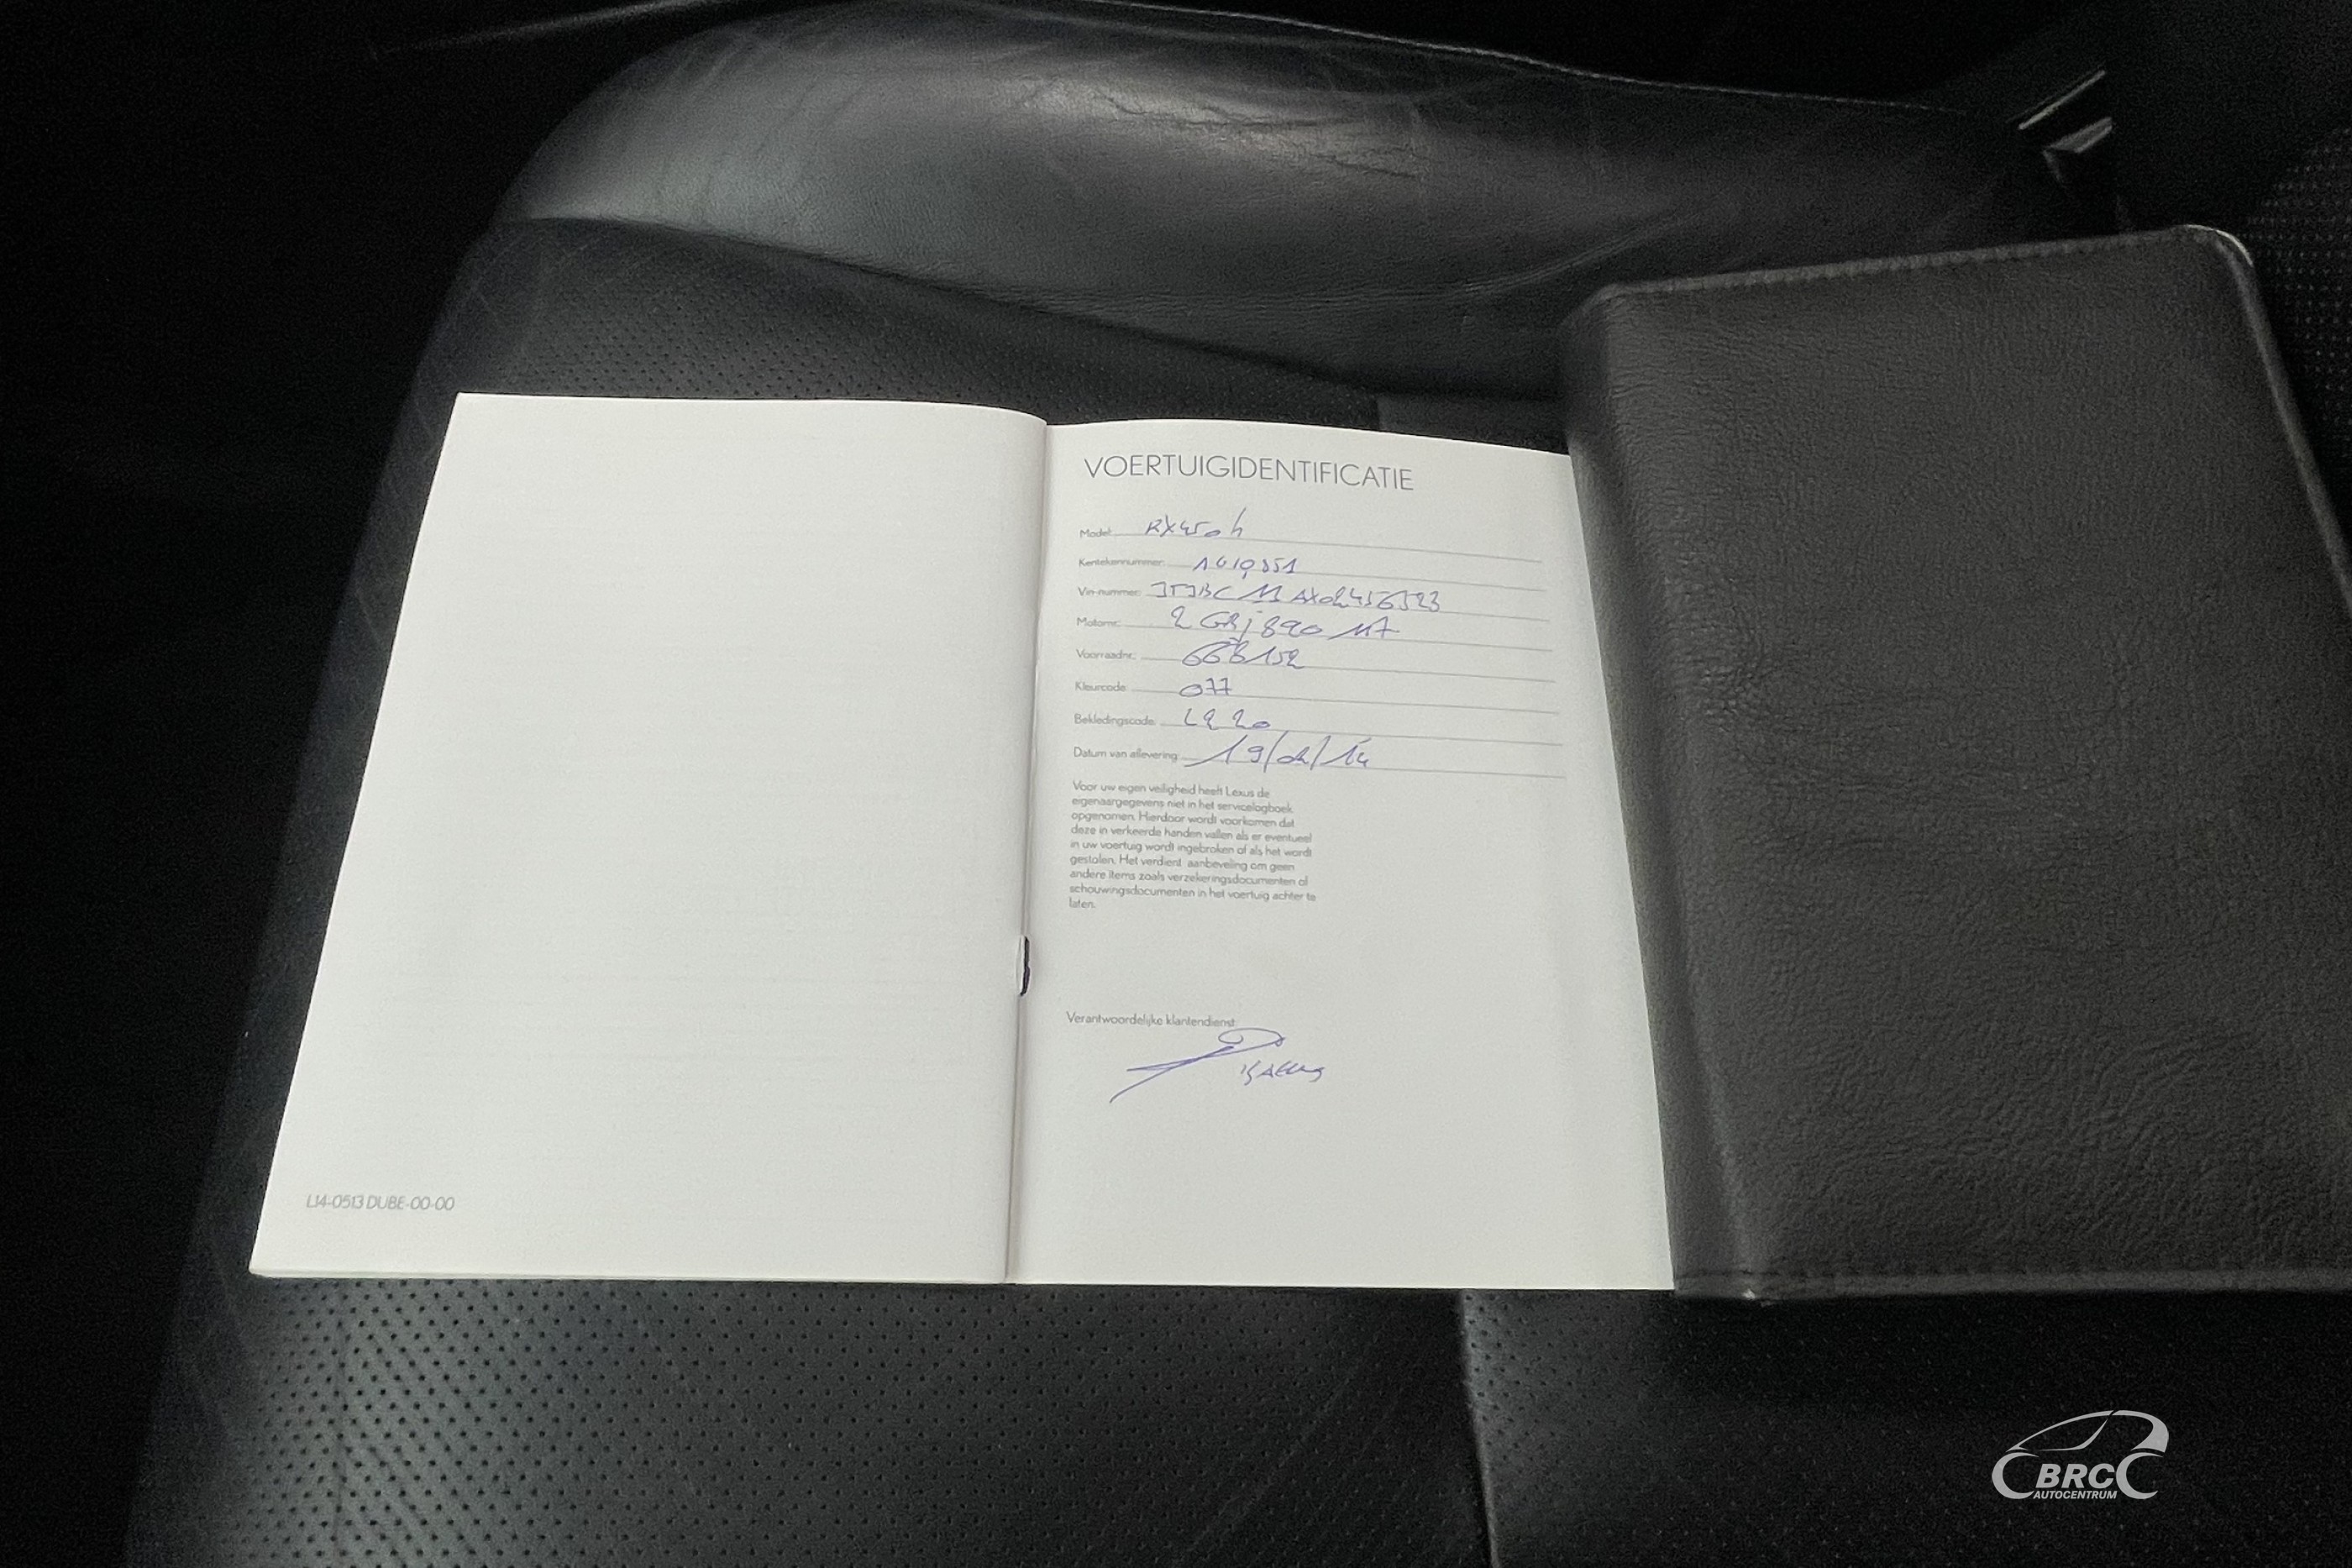 VOERTUIGIDENTIFICATIE
Model: RX450h
Kentekennummer:
Vin-nummer: JTJBC11AX02456523
Motornr.:
Voorraadnr.: 668152
Kleurcode: 077
Bekledingscode: L220
Datum van aflevering: 19/02/14
Voor uw eigen veiligheid heeft Lexus de
eigenaargegevens niet in het servicelogboek
opgenomen. Hierdoor wordt voorkomen dat
deze in verkeerde handen vallen als er eventueel
in uw voertuig wordt ingebroken of als het wordt
gestolen. Het verdient aanbeveling om geen
andere items zoals verzekeringsdocumenten of
schouwingsdocumenten in het voertuig achter te
laten.
Verantwoordelijke klantendienst:
L14-0513 DUBE-00-00
BRC
AUTOCENTRUM